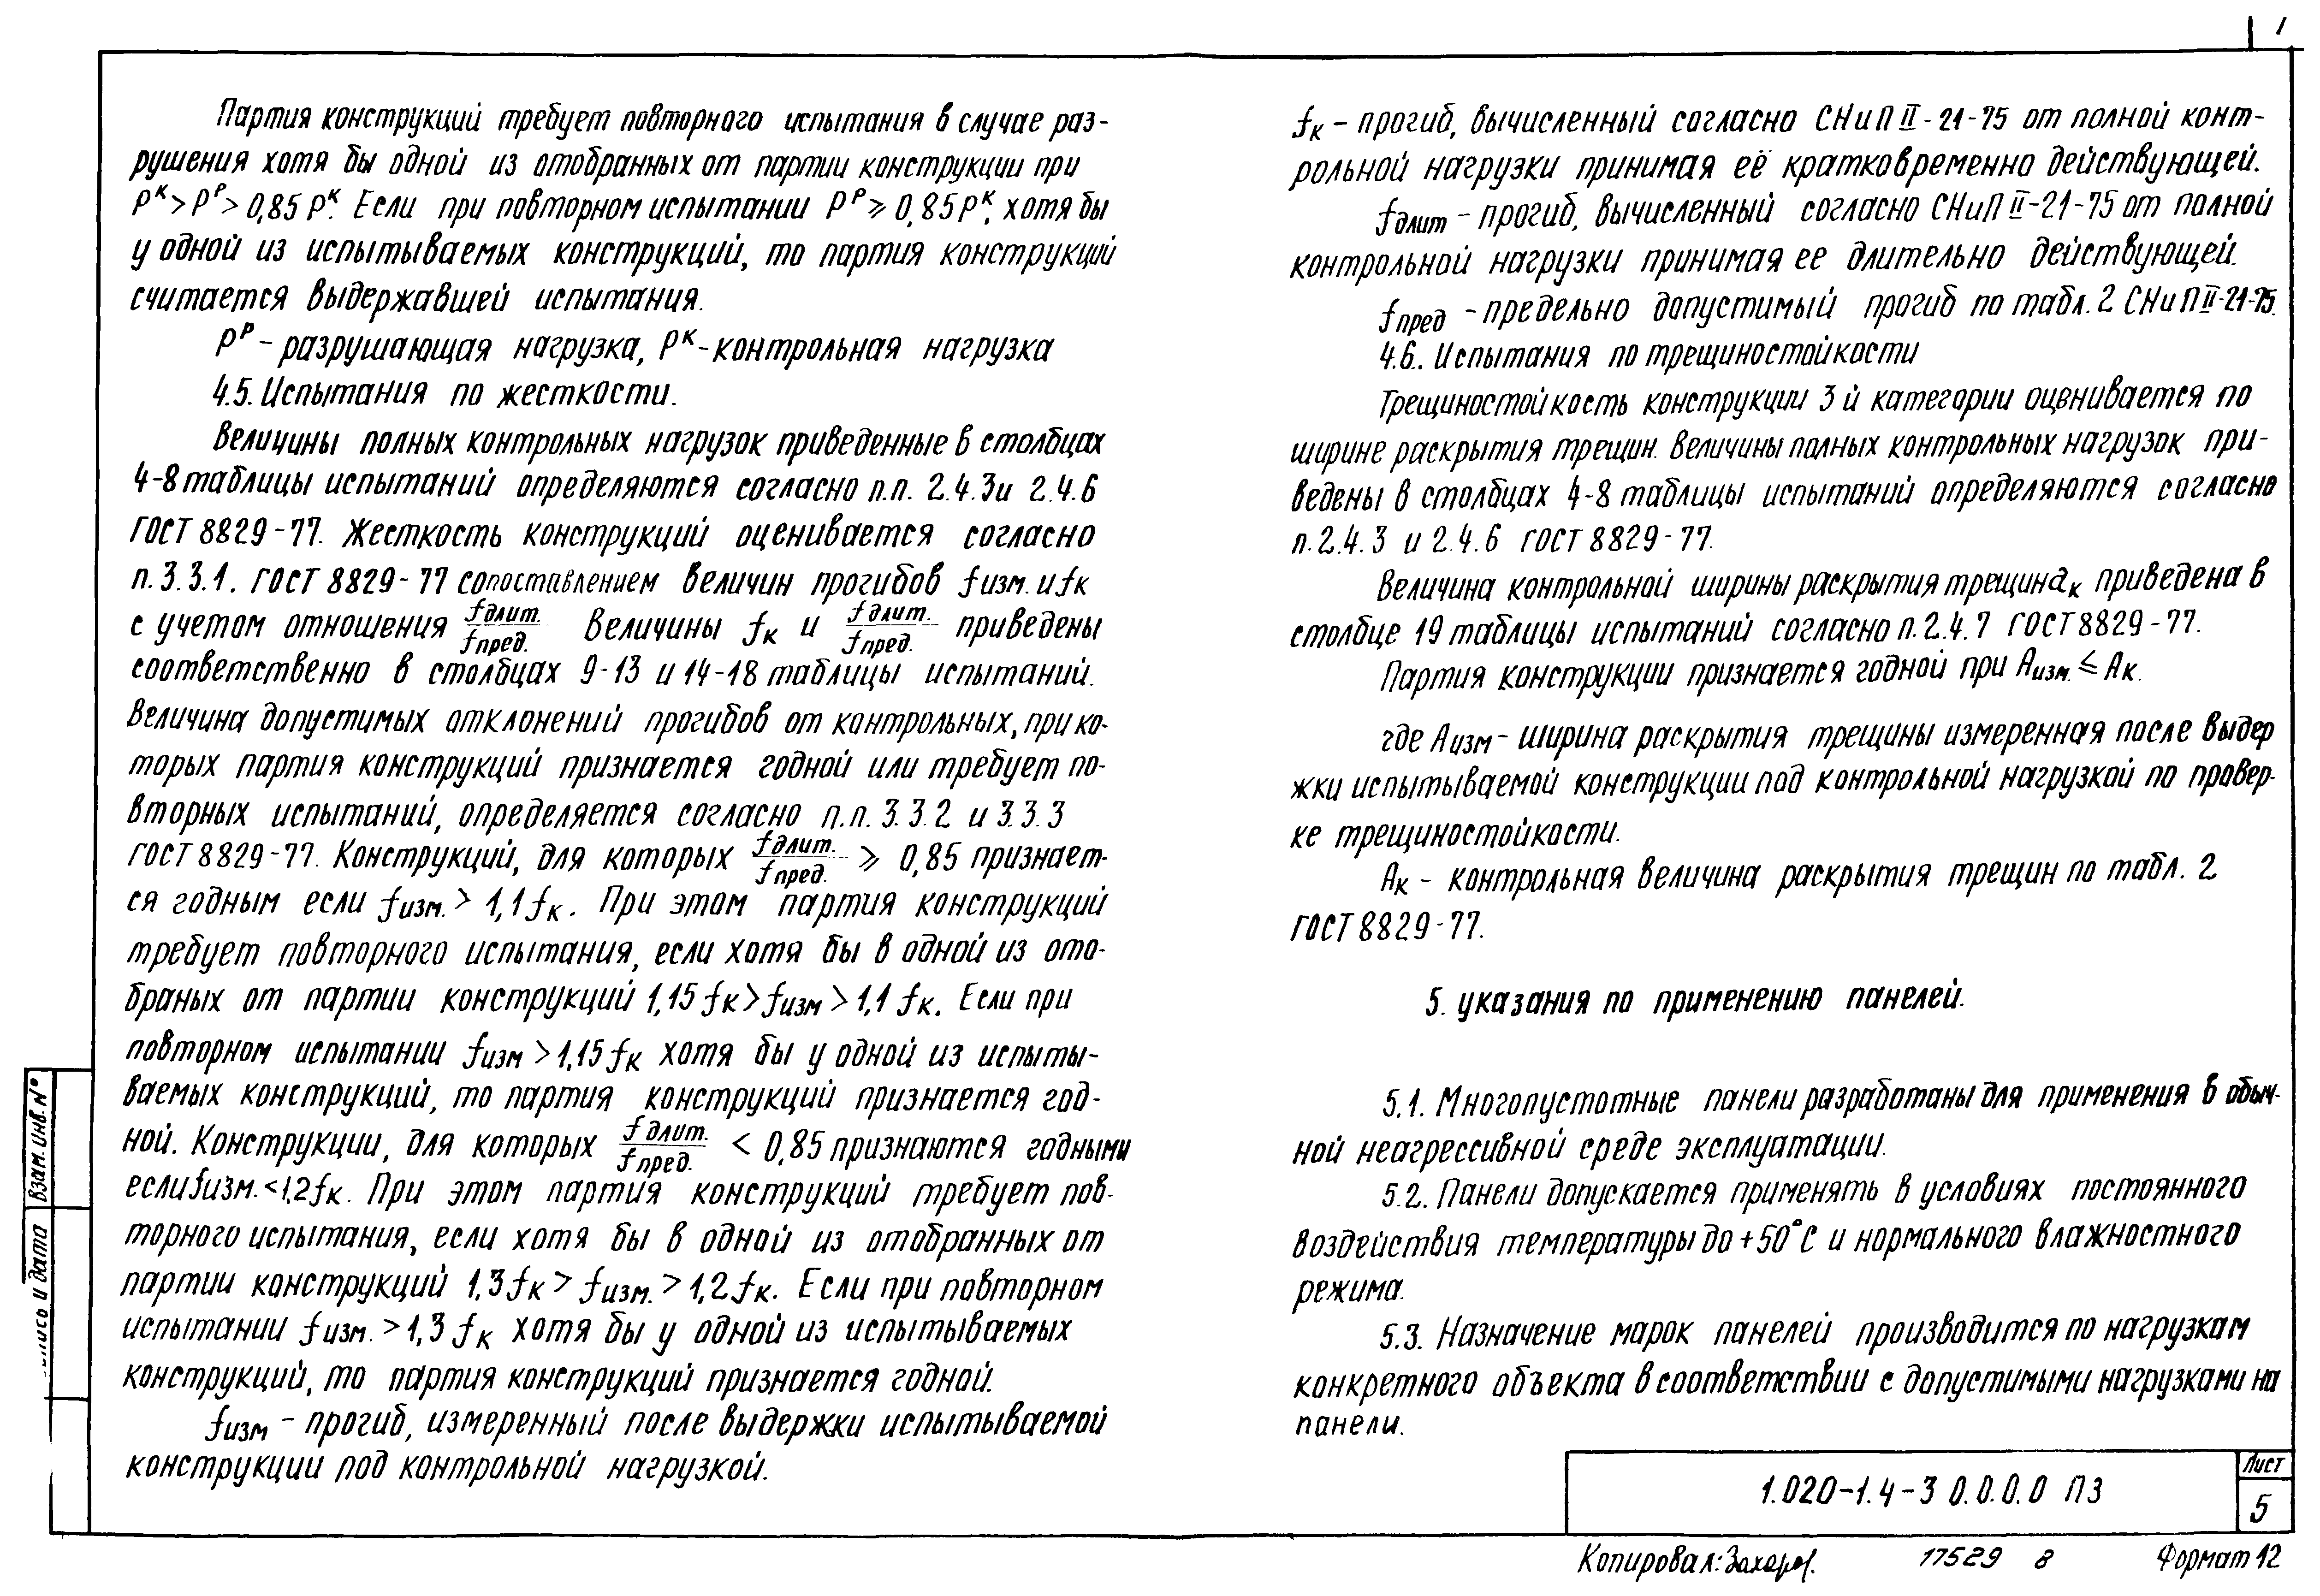 Партия конструкций требует повторного испытания в случае раз-
рушения хотя бы одной из отобранных от партии конструкции при
Pᴷ > Pᴾ > 0,85 Pᴷ. Если при повторном испытании Pᴾ ⩾ 0,85 Pᴷ, хотя бы
у одной из испытываемых конструкций, то партия конструкций
считается выдержавшей испытания.
Pᴾ – разрушающая нагрузка, Pᴷ – контрольная нагрузка
4.5. Испытания по жесткости.
Величины полных контрольных нагрузок приведенные в столбцах
4-8 таблицы испытаний определяются согласно п.п. 2.4.3 и 2.4.6
ГОСТ 8829-77. Жесткость конструкций оценивается согласно
п. 3.3.1. ГОСТ 8829-77 сопоставлением величин прогибов fизм. и fк
с учетом отношения fдлит./fпред. Величины fк и fдлит./fпред. приведены
соответственно в столбцах 9-13 и 14-18 таблицы испытаний.
Величина допустимых отклонений прогибов от контрольных, при ко-
торых партия конструкций признается годной или требует по-
вторных испытаний, определяется согласно п.п. 3.3.2 и 3.3.3
ГОСТ 8829-77. Конструкций, для которых fдлит./fпред. ⩾ 0,85 признает-
ся годным если fизм. > 1,1 fк. При этом партия конструкций
требует повторного испытания, если хотя бы в одной из ото-
браных от партии конструкций 1,15 fк > fизм > 1,1 fк. Если при
повторном испытании fизм > 1,15 fк хотя бы у одной из испыты-
ваемых конструкций, то партия конструкций признается год-
ной. Конструкции, для которых fдлит./fпред. < 0,85 признаются годными
если fизм. < 1,2 fк. При этом партия конструкций требует пов-
торного испытания, если хотя бы в одной из отобранных от
партии конструкций 1,3 fк > fизм. > 1,2 fк. Если при повторном
испытании fизм. > 1,3 fк хотя бы у одной из испытываемых
конструкций, то партия конструкций признается годной.
fизм – прогиб, измеренный после выдержки испытываемой
конструкции под контрольной нагрузкой.
fк – прогиб, вычисленный согласно СНиП II-21-75 от полной конт-
рольной нагрузки принимая её кратковременно действующей.
fдлит – прогиб, вычисленный согласно СНиП II-21-75 от полной
контрольной нагрузки принимая ее длительно действующей.
fпред – предельно допустимый прогиб по табл. 2 СНиП II-21-75.
4.6. Испытания по трещиностойкости
Трещиностойкость конструкции 3й категории оценивается по
ширине раскрытия трещин. Величины полных контрольных нагрузок при-
ведены в столбцах 4-8 таблицы испытаний определяются согласно
п. 2.4.3 и 2.4.6 ГОСТ 8829-77.
Величина контрольной ширины раскрытия трещин aк приведена в
столбце 19 таблицы испытаний согласно п. 2.4.7 ГОСТ 8829-77.
Партия конструкции признается годной при Aизм. ⩽ Aк.
где Aизм – ширина раскрытия трещины измеренная после выдер
жки испытываемой конструкции под контрольной нагрузкой по провер-
ке трещиностойкости.
Aк – контрольная величина раскрытия трещин по табл. 2
ГОСТ 8829-77.
5. Указания по применению панелей.
5.1. Многопустотные панели разработаны для применения в обыч-
ной неагрессивной среде эксплуатации.
5.2. Панели допускается применять в условиях постоянного
воздействия температуры до +50°С и нормального влажностного
режима.
5.3. Назначение марок панелей производится по нагрузкам
конкретного объекта в соответствии с допустимыми нагрузками на
панели.
1.020-1.4-3 0.0.0.0 ПЗ
Лист
5
Взам. инв. №
и дата
Копировал:
17529 8
Формат 12